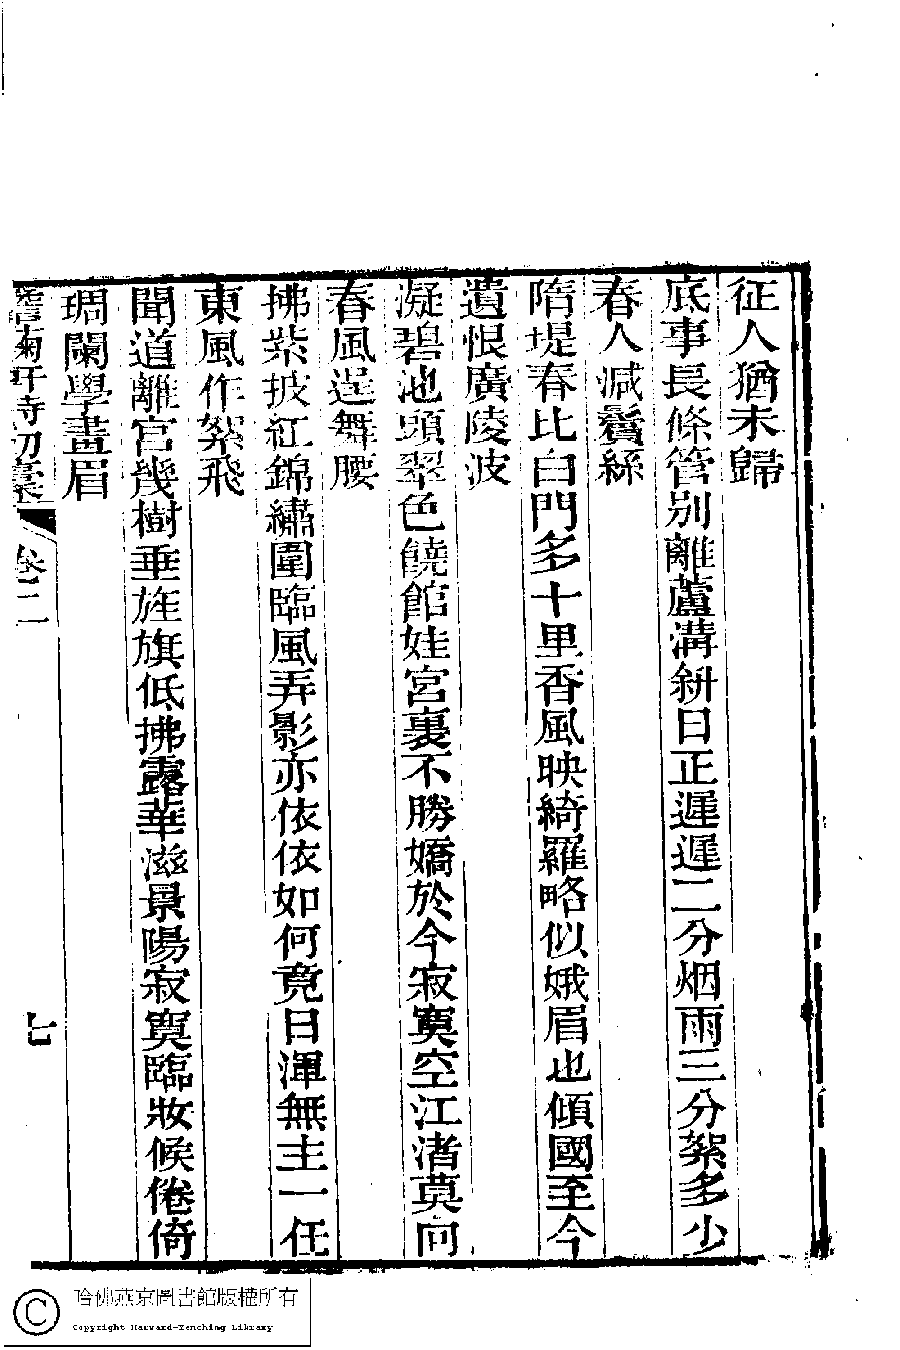 征人猶未歸
底事長條管別離蘆溝斜日正遲遲二分烟雨三分絮多少
春人減鬢絲
隋堤春比白門多十里香風映綺羅略似娥眉也傾國至今
遺恨廣陵波
凝碧池頭翠色饒館娃宮裏不勝嬌於今寂寞空江渚莫向
春風逞舞腰
拂紫披紅錦繡圍臨風弄影亦依依如何竟日渾無主一任
東風作絮飛
聞道離宮幾樹垂旌旗低拂露華滋景陽寂寞臨妝候倦倚
琱闌學畫眉
南軒詩初稾 卷二
七
哈佛燕京圖書館版權所有
Copyright Harvard-Yenching Library